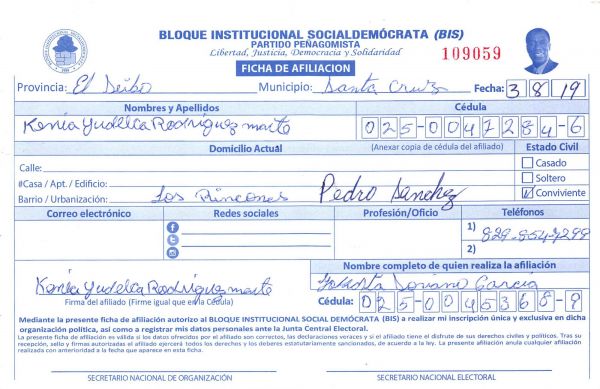 BLOQUE INSTITUCIONAL SOCIALDEMÓCRATA (BIS)
PARTIDO PEÑAGOMISTA
Libertad, Justicia, Democracia y Solidaridad
109059
FICHA DE AFILIACION
Provincia: El Seibo Municipio: Santa Cruz Fecha: 3/8/19
Nombres y Apellidos Cédula
Kenia Yudelca Rodriguez marte 025-0047284-6
Domicilio Actual (Anexar copia de cédula del afiliado) Estado Civil
Calle: Casado
#Casa / Apt. / Edificio: Soltero
Barrio / Urbanización: Los Rincones Pedro Sanchez Conviviente
Correo electrónico Redes sociales Profesión/Oficio Teléfonos
1) 829-854-7299
2)
Nombre completo de quien realiza la afiliación
Kenia Yudelca Rodriguez marte Soriano Garcia
Firma del afiliado (Firme igual que en la Cédula) Cédula: 025-0045368-9
Mediante la presente ficha de afiliación autorizo al BLOQUE INSTITUCIONAL SOCIAL DEMÓCRATA (BIS) a realizar mi inscripción única y exclusiva en dicha
organización política, así como a registrar mis datos personales ante la Junta Central Electoral.
La presente ficha de afiliación es válida si los datos ofrecidos por el afiliado son correctos, las declaraciones veraces y si el afiliado tiene el disfrute de sus derechos civiles y políticos. Tras su
recepción, sello y firmas autorizadas el afiliado ejercerá todos los derechos y los deberes estatutariamente sancionados, de acuerdo a la ley. La presente afiliación anula cualquier afiliación
realizada con anterioridad a la fecha que aparece en esta ficha.
SECRETARIO NACIONAL DE ORGANIZACIÓN SECRETARIO NACIONAL ELECTORAL